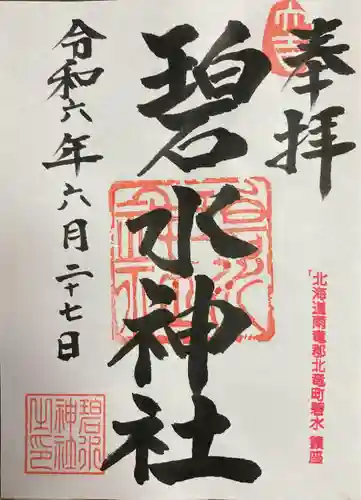 奉拝
北海道雨竜郡北竜町碧水 鎮座
碧水神社
令和六年六月二十七日
碧水
神社
之印